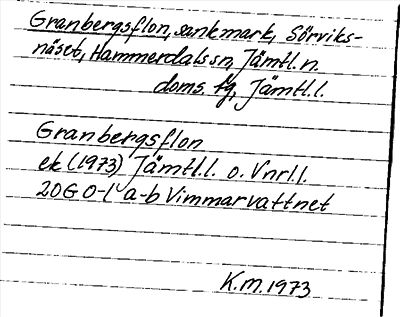 Granbergsflon, sankmark, Sörviks-
näset, Hammerdals sn, Jämtl. n.
doms. tg, Jämtl. l.
Granbergsflon
ek (1973) Jämtl. l. o. Vnrl. l.
20G 0-1 a-b Vimmarvattnet
K.M. 1973